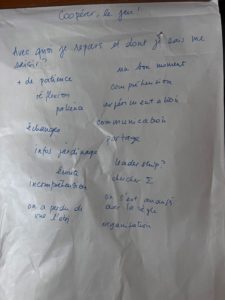 Coopérer, le jeu!
Avec quoi je repars et dont je vais me
saisir?
+ de patience
réflexion
patience
échanges
infos jardinage
écoute
incompréhension
on a perdu de
vue l'obj
un bon moment
compréhension
expérimentation
communication
partage
leadership?
chercher Σ
on s'est
la règle
organisation